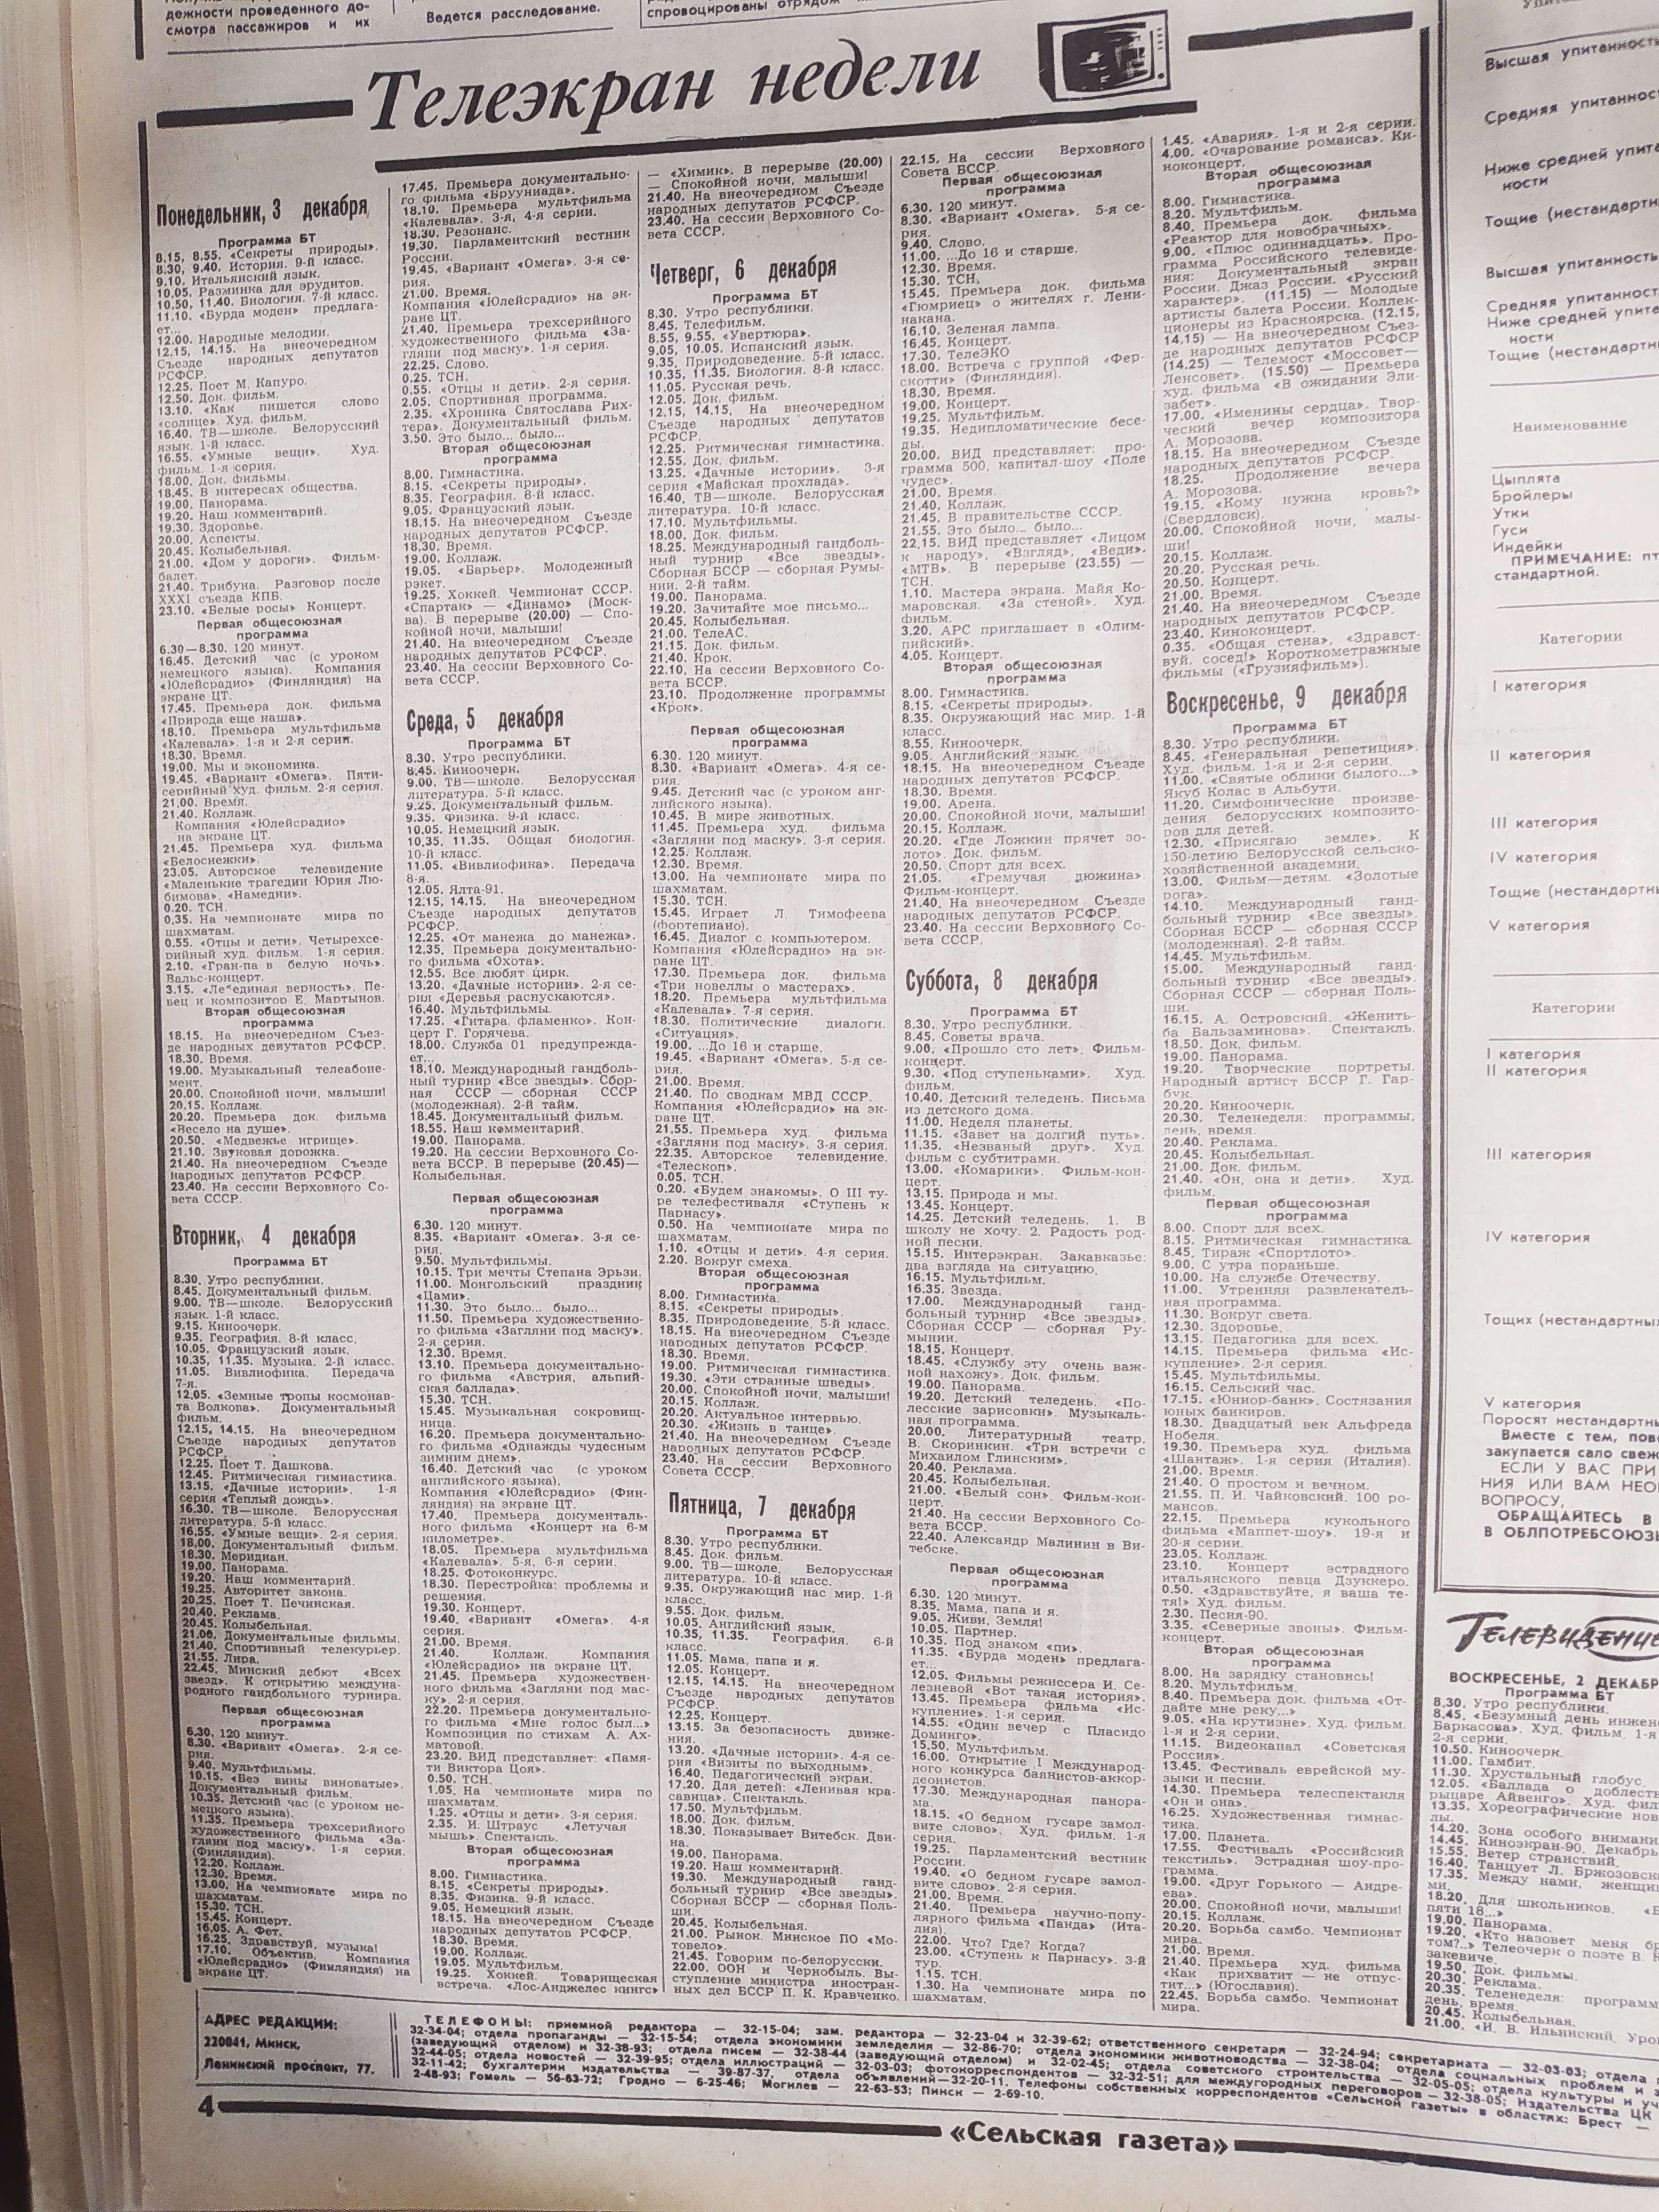 дежности проведенного до-
смотра пассажиров и их
Ведется расследование.
спровоцированы отрядом
Телеэкран недели
Понедельник, 3 декабря
Программа БТ
8.15, 8.55. «Секреты природы».
8.30, 9.40. История. 9-й класс.
9.10. Итальянский язык.
10.05. Разминка для эрудитов.
10.50, 11.40. Биология. 7-й класс.
11.10. «Бурда моден» предлага-
ет...
12.00. Народные мелодии.
12.15, 14.15. На внеочередном
Съезде народных депутатов
РСФСР.
12.25. Поет М. Капуро.
12.50. Док. фильм.
13.10. «Как пишется слово
«солнце». Худ. фильм.
16.40. ТВ—школе. Белорусский
язык. 1-й класс.
16.55. «Умные вещи». Худ.
фильм. 1-я серия.
18.00. Док. фильмы.
18.45. В интересах общества.
19.00. Панорама.
19.20. Наш комментарий.
19.30. Здоровье.
20.00. Аспекты.
20.45. Колыбельная.
21.00. «Дом у дороги». Фильм-
балет.
21.40. Трибуна. Разговор после
XXXI съезда КПБ.
23.10. «Белые росы» Концерт.
Первая общесоюзная
программа
6.30—8.30. 120 минут.
16.45. Детский час (с уроком
немецкого языка). Компания
«Юлейсрадио» (Финляндия) на
экране ЦТ.
17.45. Премьера док. фильма
«Природа еще наша».
18.10. Премьера мультфильма
«Калевала». 1-я и 2-я серии.
18.30. Время.
19.00. Мы и экономика.
19.45. «Вариант «Омега». Пяти-
серийный худ. фильм. 2-я серия.
21.00. Время.
21.40. Коллаж.
Компания «Юлейсрадио»
на экране ЦТ.
21.45. Премьера худ. фильма
«Белоснежки».
23.05. Авторское телевидение
«Маленькие трагедии Юрия Лю-
бимова», «Намедни».
0.20. ТСН.
0.35. На чемпионате мира по
шахматам.
0.55. «Отцы и дети». Четырехсе-
рийный худ. фильм. 1-я серия.
2.10. «Гран-па в белую ночь».
Вальс-концерт.
3.15. «Лебединая верность». Пе-
вец и композитор Е. Мартынов.
Вторая общесоюзная
программа
18.15. На внеочередном Съез-
де народных депутатов РСФСР.
18.30. Время.
19.00. Музыкальный телеабоне-
мент.
20.00. Спокойной ночи, малыши!
20.15. Коллаж.
20.20. Премьера док. фильма
«Весело на душе».
20.50. «Медвежье игрище».
21.10. Звуковая дорожка.
21.40. На внеочередном Съезде
народных депутатов РСФСР.
23.40. На сессии Верховного Со-
вета СССР.
Вторник, 4 декабря
Программа БТ
8.30. Утро республики.
8.45. Документальный фильм.
9.00. ТВ—школе. Белорусский
язык. 1-й класс.
9.15. Киноочерк.
9.35. География. 8-й класс.
10.05. Французский язык.
10.35, 11.35. Музыка. 2-й класс.
11.05. Вивлиофика. Передача
7-я.
12.05. «Земные тропы космонав-
та Волкова». Документальный
фильм.
12.15, 14.15. На внеочередном
Съезде народных депутатов
РСФСР.
12.25. Поет Т. Дашкова.
12.45. Ритмическая гимнастика.
13.15. «Дачные истории». 1-я
серия «Теплый дождь».
16.30. ТВ—школе. Белорусская
литература. 5-й класс.
16.55. «Умные вещи». 2-я серия.
18.00. Документальный фильм.
18.30. Меридиан.
19.00. Панорама.
19.20. Наш комментарий.
19.25. Авторитет закона.
20.25. Поет Т. Печинская.
20.40. Реклама.
20.45. Колыбельная.
21.00. Документальные фильмы.
21.40. Спортивный телекурьер.
21.55. Лира.
22.45. Минский дебют «Всех
звезд». К открытию междуна-
родного гандбольного турнира.
Первая общесоюзная
программа
6.30. 120 минут.
8.30. «Вариант «Омега». 2-я се-
рия.
9.40. Мультфильмы.
10.15. «Без вины виноватые».
Документальный фильм.
10.35. Детский час (с уроком не-
мецкого языка).
11.35. Премьера трехсерийного
художественного фильма «За-
гляни под маску». 1-я серия.
(Финляндия).
12.20. Коллаж.
12.30. Время.
13.00. На чемпионате мира по
шахматам.
15.30. ТСН.
15.45. Концерт.
16.05. А. Фет.
16.25. Здравствуй, музыка!
17.10. Объектив. Компания
«Юлейсрадио» (Финляндия) на
экране ЦТ.
17.45. Премьера документально-
го фильма «Брууниада».
18.10. Премьера мультфильма
«Калевала». 3-я, 4-я серии.
18.30. Резонанс.
19.30. Парламентский вестник
России.
19.45. «Вариант «Омега». 3-я се-
рия.
21.00. Время.
Компания «Юлейсрадио» на эк-
ране ЦТ.
21.40. Премьера трехсерийного
художественного фильма «За-
гляни под маску». 1-я серия.
22.25. Слово.
0.25. ТСН.
0.55. «Отцы и дети». 2-я серия.
2.05. Спортивная программа.
2.35. «Хроника Святослава Рих-
тера». Документальный фильм.
3.50. Это было... было...
Вторая общесоюзная
программа
8.00. Гимнастика.
8.15. «Секреты природы».
8.35. География. 8-й класс.
9.05. Французский язык.
18.15. На внеочередном Съезде
народных депутатов РСФСР.
18.30. Время.
19.00. Коллаж.
19.05. «Барьер». Молодежный
рэкет.
19.25. Хоккей. Чемпионат СССР.
«Спартак» — «Динамо» (Моск-
ва). В перерыве (20.00) — Спо-
койной ночи, малыши!
21.40. На внеочередном Съезде
народных депутатов РСФСР.
23.40. На сессии Верховного Со-
вета СССР.
Среда, 5 декабря
Программа БТ
8.30. Утро республики.
8.45. Киноочерк.
9.00. ТВ—школе. Белорусская
литература. 5-й класс.
9.25. Документальный фильм.
9.35. Физика. 9-й класс.
10.05. Немецкий язык.
10.35, 11.35. Общая биология.
10-й класс.
11.05. «Вивлиофика». Передача
8-я.
12.05. Ялта-91.
12.15, 14.15. На внеочередном
Съезде народных депутатов
РСФСР.
12.25. «От манежа до манежа».
12.35. Премьера документально-
го фильма «Охота».
12.55. Все любят цирк.
13.20. «Дачные истории». 2-я се-
рия «Деревья распускаются».
16.40. Мультфильмы.
17.25. «Гитара, фламенко». Кон-
церт Г. Горячева.
18.00. Служба 01 предупрежда-
ет...
18.10. Международный гандболь-
ный турнир «Все звезды». Сбор-
ная СССР — сборная СССР
(молодежная). 2-й тайм.
18.45. Документальный фильм.
18.55. Наш комментарий.
19.00. Панорама.
19.20. На сессии Верховного Со-
вета БССР. В перерыве (20.45)—
Колыбельная.
Первая общесоюзная
программа
6.30. 120 минут.
8.35. «Вариант «Омега». 3-я се-
рия.
9.50. Мультфильмы.
10.15. Три мечты Степана Эрьзи.
11.00. Монгольский праздник
«Цами».
11.30. Это было... было...
11.50. Премьера художественно-
го фильма «Загляни под маску».
2-я серия.
12.30. Время.
13.10. Премьера документально-
го фильма «Австрия, альпий-
ская баллада».
15.30. ТСН.
15.45. Музыкальная сокровищ-
ница.
16.20. Премьера документально-
го фильма «Однажды чудесным
зимним днем».
16.40. Детский час (с уроком
английского языка).
Компания «Юлейсрадио» (Фин-
ляндия) на экране ЦТ.
17.40. Премьера документаль-
ного фильма «Концерт на 6-м
километре».
18.05. Премьера мультфильма
«Калевала». 5-я, 6-я серии.
18.25. Фотоконкурс.
18.30. Перестройка: проблемы и
решения.
19.30. Концерт.
19.40. «Вариант «Омега». 4-я
серия.
21.00. Время.
21.40. Коллаж. Компания
«Юлейсрадио» на экране ЦТ.
21.45. Премьера художествен-
ного фильма «Загляни под мас-
ку». 2-я серия.
22.20. Премьера документально-
го фильма «Мне голос был...»
Композиция по стихам А. Ах-
матовой.
23.20. ВИД представляет: «Памя-
ти Виктора Цоя».
0.50. ТСН.
1.05. На чемпионате мира по
шахматам.
1.25. «Отцы и дети». 3-я серия.
2.35. И. Штраус «Летучая
мышь». Спектакль.
Вторая общесоюзная
программа
8.00. Гимнастика.
8.15. «Секреты природы».
8.35. Физика. 9-й класс.
9.05. Немецкий язык.
18.15. На внеочередном Съезде
народных депутатов РСФСР.
18.30. Время.
19.00. Коллаж.
19.05. Мультфильм.
19.25. Хоккей. Товарищеская
встреча. «Лос-Анджелес кингс»
— «Химик». В перерыве (20.00)
— Спокойной ночи, малыши!
21.40. На внеочередном Съезде
народных депутатов РСФСР.
23.40. На сессии Верховного Со-
вета СССР.
Четверг, 6 декабря
Программа БТ
8.30. Утро республики.
8.45. Телефильм.
8.55, 9.55. «Увертюра».
9.05, 10.05. Испанский язык.
9.35. Природоведение. 5-й класс.
10.35, 11.35. Биология. 8-й класс.
11.05. Русская речь.
12.05. Док. фильм.
12.15, 14.15. На внеочередном
Съезде народных депутатов
РСФСР.
12.25. Ритмическая гимнастика.
12.55. Док. фильм.
13.25. «Дачные истории». 3-я
серия «Майская прохлада».
16.40. ТВ—школе. Белорусская
литература. 10-й класс.
17.10. Мультфильмы.
18.00. Док. фильм.
18.25. Международный гандболь-
ный турнир «Все звезды».
Сборная БССР — сборная Румы-
нии. 2-й тайм.
19.00. Панорама.
19.20. Зачитайте мое письмо...
20.45. Колыбельная.
21.00. ТелеАС.
21.15. Док. фильм.
21.40. Крок.
22.10. На сессии Верховного Со-
вета БССР.
23.10. Продолжение программы
«Крок».
Первая общесоюзная
программа
6.30. 120 минут.
8.30. «Вариант «Омега». 4-я се-
рия.
9.45. Детский час (с уроком анг-
лийского языка).
10.45. В мире животных.
11.45. Премьера худ. фильма
«Загляни под маску». 3-я серия.
12.25. Коллаж.
12.30. Время.
13.00. На чемпионате мира по
шахматам.
15.30. ТСН.
15.45. Играет Л. Тимофеева
(фортепиано).
16.45. Диалог с компьютером.
Компания «Юлейсрадио» на эк-
ране ЦТ.
17.30. Премьера док. фильма
«Три новеллы о мастерах».
18.20. Премьера мультфильма
«Калевала». 7-я серия.
18.30. Политические диалоги.
«Ситуация».
19.00. ...До 16 и старше.
19.45. «Вариант «Омега». 5-я се-
рия.
21.00. Время.
21.40. По сводкам МВД СССР.
Компания «Юлейсрадио» на эк-
ране ЦТ.
21.55. Премьера худ. фильма
«Загляни под маску». 3-я серия.
22.35. Авторское телевидение.
«Телескоп».
0.05. ТСН.
0.20. «Будем знакомы». О III ту-
ре телефестиваля «Ступень к
Парнасу».
0.50. На чемпионате мира по
шахматам.
1.10. «Отцы и дети». 4-я серия.
2.20. Вокруг смеха.
Вторая общесоюзная
программа
8.00. Гимнастика.
8.15. «Секреты природы».
8.35. Природоведение. 5-й класс.
18.15. На внеочередном Съезде
народных депутатов РСФСР.
18.30. Время.
19.00. Ритмическая гимнастика.
19.30. «Эти странные шведы».
20.00. Спокойной ночи, малыши!
20.15. Коллаж.
20.20. Актуальное интервью.
20.30. «Жизнь в танце».
21.40. На внеочередном Съезде
народных депутатов РСФСР.
23.40. На сессии Верховного
Совета СССР.
Пятница, 7 декабря
Программа БТ
8.30. Утро республики.
8.45. Док. фильм.
9.00. ТВ—школе. Белорусская
литература. 10-й класс.
9.35. Окружающий нас мир. 1-й
класс.
9.55. Док. фильм.
10.05. Английский язык.
10.35, 11.35. География. 6-й
класс.
11.05. Мама, папа и я.
12.05. Концерт.
12.15, 14.15. На внеочередном
Съезде народных депутатов
РСФСР.
12.25. Концерт.
13.15. За безопасность движе-
ния.
13.20. «Дачные истории». 4-я се-
рия «Визиты по выходным».
16.40. Педагогический экран.
17.20. Для детей: «Ленивая кра-
савица». Спектакль.
17.50. Мультфильм.
18.00. Док. фильм.
18.30. Показывает Витебск. Дви-
на.
19.00. Панорама.
19.20. Наш комментарий.
19.30. Международный ганд-
больный турнир «Все звезды».
Сборная БССР — сборная Поль-
ши.
20.45. Колыбельная.
21.00. Рынок. Минское ПО «Мо-
товело».
21.45. Говорим по-белорусски.
22.00. ООН и Чернобыль. Вы-
ступление министра иностран-
ных дел БССР П. К. Кравченко.
22.15. На сессии Верховного
Совета БССР.
Первая общесоюзная
программа
6.30. 120 минут.
8.30. «Вариант «Омега». 5-я се-
рия.
9.40. Слово.
11.00. ...До 16 и старше.
12.30. Время.
15.30. ТСН.
15.45. Премьера док. фильма
«Гюмриец» о жителях г. Лени-
накана.
16.10. Зеленая лампа.
16.45. Концерт.
17.30. ТелеЭКО
18.00. Встреча с группой «Фер-
скотти» (Финляндия).
18.30. Время.
19.00. Концерт.
19.25. Мультфильм.
19.35. Недипломатические бесе-
ды.
20.00. ВИД представляет: про-
грамма 500, капитал-шоу «Поле
чудес».
21.00. Время.
21.40. Коллаж.
21.45. В правительстве СССР.
21.55. Это было... было...
22.15. ВИД представляет «Лицом
к народу», «Взгляд», «Веди».
«МТВ». В перерыве (23.55) —
ТСН.
1.10. Мастера экрана. Майя Ко-
маровская. «За стеной». Худ.
фильм.
3.20. АРС приглашает в «Олим-
пийский».
4.05. Концерт.
Вторая общесоюзная
программа
8.00. Гимнастика.
8.15. «Секреты природы».
8.35. Окружающий нас мир. 1-й
класс.
8.55. Киноочерк.
9.05. Английский язык.
18.15. На внеочередном Съезде
народных депутатов РСФСР.
18.30. Время.
19.00. Арена.
20.00. Спокойной ночи, малыши!
20.15. Коллаж.
20.20. «Где Ложкин прячет зо-
лото». Док. фильм.
20.50. Спорт для всех.
21.05. «Гремучая дюжина».
Фильм-концерт.
21.40. На внеочередном Съезде
народных депутатов РСФСР.
23.40. На сессии Верховного Со-
вета СССР.
Суббота, 8 декабря
Программа БТ
8.30. Утро республики.
8.45. Советы врача.
9.00. «Прошло сто лет». Фильм-
концерт.
9.30. «Под ступеньками». Худ.
фильм.
10.40. Детский теледень. Письма
из детского дома.
11.00. Неделя планеты.
11.15. «Завет на долгий путь».
11.35. «Незваный друг». Худ.
фильм с субтитрами.
13.00. «Комарики». Фильм-кон-
церт.
13.15. Природа и мы.
13.45. Концерт.
14.25. Детский теледень. 1. В
школу не хочу. 2. Радость род-
ной песни.
15.15. Интерэкран. Закавказье:
два взгляда на ситуацию.
16.15. Мультфильм.
16.35. Звезда.
17.00. Международный ганд-
больный турнир «Все звезды».
Сборная СССР — сборная Ру-
мынии.
18.15. Концерт.
18.45. «Службу эту очень важ-
ной нахожу». Док. фильм.
19.00. Панорама.
19.20. Детский теледень. «По-
лесские зарисовки». Музыкаль-
ная программа.
20.00. Литературный театр.
В. Скоринкин. «Три встречи с
Михаилом Глинским».
20.40. Реклама.
20.45. Колыбельная.
21.00. «Белый сон». Фильм-кон-
церт.
21.40. На сессии Верховного Со-
вета БССР.
22.40. Александр Малинин в Ви-
тебске.
Первая общесоюзная
программа
6.30. 120 минут.
8.35. Мама, папа и я.
9.05. Живи, Земля!
10.05. Партнер.
10.35. Под знаком «пи».
11.35. «Бурда моден» предлага-
ет...
12.05. Фильмы режиссера И. Се-
лезневой «Вот такая история».
13.45. Премьера фильма «Ис-
купление». 1-я серия.
14.55. «Один вечер с Пласидо
Доминго».
15.50. Мультфильм.
16.00. Открытие I Международ-
ного конкурса баянистов-аккор-
деонистов.
17.30. Международная панора-
ма.
18.15. «О бедном гусаре замол-
вите слово». Худ. фильм. 1-я
серия.
19.25. Парламентский вестник
России.
19.40. «О бедном гусаре замол-
вите слово». 2-я серия.
21.00. Время.
21.40. Премьера научно-попу-
лярного фильма «Панда» (Ита-
лия).
22.00. Что? Где? Когда?
23.00. «Ступень к Парнасу». 3-й
тур.
1.15. ТСН.
1.30. На чемпионате мира по
шахматам.
1.45. «Авария». 1-я и 2-я серии.
4.00. «Очарование романса». Ки-
ноконцерт.
Вторая общесоюзная
программа
8.00. Гимнастика.
8.20. Мультфильм.
8.40. Премьера док. фильма
«Реактор для новобрачных».
9.00. «Плюс одиннадцать». Про-
грамма Российского телевиде-
ния: Документальный экран
России. Джаз России. «Русский
характер». (11.15) — Молодые
артисты балета России. Коллек-
ционеры из Красноярска. (12.15,
14.15) — На внеочередном Съез-
де народных депутатов РСФСР
(14.25) — Телемост «Моссовет—
Ленсовет». (15.50) — Премьера
худ. фильма «В ожидании Эли-
забет».
17.00. «Именины сердца». Твор-
ческий вечер композитора
А. Морозова.
18.15. На внеочередном Съезде
народных депутатов РСФСР.
18.25. Продолжение вечера
А. Морозова.
19.15. «Кому нужна кровь?»
(Свердловск).
20.00. Спокойной ночи, малы-
ши!
20.15. Коллаж.
20.20. Русская речь.
20.50. Концерт.
21.00. Время.
21.40. На внеочередном Съезде
народных депутатов РСФСР.
23.40. Киноконцерт.
0.35. «Общая стена», «Здравст-
вуй, сосед!» Короткометражные
фильмы («Грузияфильм»).
Воскресенье, 9 декабря
Программа БТ
8.30. Утро республики.
8.45. «Генеральная репетиция».
Худ. фильм. 1-я и 2-я серии.
11.00. «Святые облики былого...»
Якуб Колас в Альбути.
11.20. Симфонические произве-
дения белорусских композито-
ров для детей.
12.30. «Присягаю земле». К
150-летию Белорусской сельско-
хозяйственной академии.
13.00. Фильм—детям. «Золотые
рога».
14.10. Международный ганд-
больный турнир «Все звезды».
Сборная БССР — сборная СССР
(молодежная). 2-й тайм.
14.45. Мультфильм.
15.00. Международный ганд-
больный турнир «Все звезды».
Сборная СССР — сборная Поль-
ши.
16.15. А. Островский. «Женить-
ба Бальзаминова». Спектакль.
18.50. Док. фильм.
19.00. Панорама.
19.20. Творческие портреты.
Народный артист БССР Г. Гар-
бук.
20.20. Киноочерк.
20.30. Теленеделя: программы,
день, время.
20.40. Реклама.
20.45. Колыбельная.
21.00. Док. фильм.
21.40. «Он, она и дети». Худ.
фильм.
Первая общесоюзная
программа
8.00. Спорт для всех.
8.15. Ритмическая гимнастика.
8.45. Тираж «Спортлото».
9.00. С утра пораньше.
10.00. На службе Отечеству.
11.00. Утренняя развлекатель-
ная программа.
11.30. Вокруг света.
12.30. Здоровье.
13.15. Педагогика для всех.
14.15. Премьера фильма «Ис-
купление». 2-я серия.
15.45. Мультфильмы.
16.15. Сельский час.
17.15. «Юниор-банк». Состязания
юных банкиров.
18.30. Двадцатый век Альфреда
Нобеля.
19.30. Премьера худ. фильма
«Шантаж». 1-я серия (Италия).
21.00. Время.
21.40. О простом и вечном.
21.55. П. И. Чайковский. 100 ро-
мансов.
22.15. Премьера кукольного
фильма «Маппет-шоу». 19-я и
20-я серии.
23.05. Коллаж.
23.10. Концерт эстрадного
итальянского певца Дзуккеро.
0.50. «Здравствуйте, я ваша те-
тя!» Худ. фильм.
2.30. Песня-90.
3.35. «Северные звоны». Фильм-
концерт.
Вторая общесоюзная
программа
8.00. На зарядку становись!
8.20. Мультфильм.
8.40. Премьера док. фильма «От-
дайте мне реку...»
9.05. «На крутизне». Худ. фильм.
1-я и 2-я серии.
11.15. Видеоканал «Советская
Россия».
13.45. Фестиваль еврейской му-
зыки и песни.
14.30. Премьера телеспектакля
«Он и она».
16.25. Художественная гимнас-
тика.
17.00. Планета.
17.55. Фестиваль «Российский
текстиль». Эстрадная шоу-про-
грамма.
19.00. «Друг Горького — Андре-
ева».
20.00. Спокойной ночи, малыши!
20.15. Коллаж.
20.20. Борьба самбо. Чемпионат
мира.
21.00. Время.
21.40. Премьера худ. фильма
«Как прихватит — не отпус-
тит...» (Югославия).
22.45. Борьба самбо. Чемпионат
мира.
Высшая упитанность
Средняя упитанность
Ниже средней упита
ности
Тощие (нестандартн
Высшая упитанность
Средняя упитанность
Ниже средней упита
ности
Тощие (нестандартны
Наименование
Цыплята
Бройлеры
Утки
Гуси
Индейки
ПРИМЕЧАНИЕ: пт
стандартной.
Категории
I категория
II категория
III категория
IV категория
Тощие (нестандартны
V категория
Категории
I категория
II категория
III категория
IV категория
Тощих (нестандартных
V категория
Поросят нестандартны
Вместе с тем, пов
закупается сало свеж
ЕСЛИ У ВАС ПРИ
НИЯ ИЛИ ВАМ НЕО
ВОПРОСУ,
ОБРАЩАЙТЕСЬ В
В ОБЛПОТРЕБСОЮЗЫ
Телевидение
ВОСКРЕСЕНЬЕ, 2 ДЕКАБР
Программа БТ
8.30. Утро республики.
8.45. «Безумный день инжене
Баркасова». Худ. фильм 1-я
2-я серии.
10.50. Киноочерк.
11.00. Гамбит.
11.30. Хрустальный глобус.
12.05. «Баллада о доблестн
рыцаре Айвенго». Худ. фил
13.35. Хореографические нов
лы.
14.20. Зона особого внимани
14.45. Киноэкран-90. Декабрь
15.55. Ветер странствий.
16.40. Танцует Л. Бржозовск
17.35. Между нами, женщи
ми.
18.20. Для школьников. «Е
пяти 18...»
19.00. Панорама.
19.20. «Кто назовет меня бр
том?..» Телеочерк о поэте В.
закевиче.
19.50. Док. фильмы.
20.30. Реклама.
20.35. Теленеделя: программ
день, время.
20.45. Колыбельная.
21.00. «И. В. Ильинский. Уро
АДРЕС РЕДАКЦИИ:
220041, Минск,
Ленинский проспект, 77.
ТЕЛЕФОНЫ: приемной редактора — 32-15-04; зам. редактора — 32-23-04 и 32-39-62; ответственного секретаря — 32-24-94; секретариата — 32-03-03; отдела
32-34-04; отдела пропаганды — 32-15-54; отдела экономики земледелия — 32-86-70; отдела экономики животноводства — 32-38-04; отдела социальных проблем и
(заведующий отделом) и 32-38-93; отдела писем — 32-38-44 (заведующий отделом) и 32-02-45; отдела советского строительства — 32-05-05; отдела культуры и уч
32-44-05; отдела новостей — 32-39-95; отдела иллюстраций — 32-03-03; фотокорреспондентов — 32-32-51; для междугородных переговоров — 32-38-05; Издательства ЦК
32-11-42; бухгалтерии издательства — 39-87-37, отдела объявлений—32-20-11. Телефоны собственных корреспондентов «Сельской газеты» в областях: Брест —
2-48-93; Гомель — 56-63-72; Гродно — 6-25-46; Могилев — 22-63-53; Пинск — 2-69-10.
4
«Сельская газета»